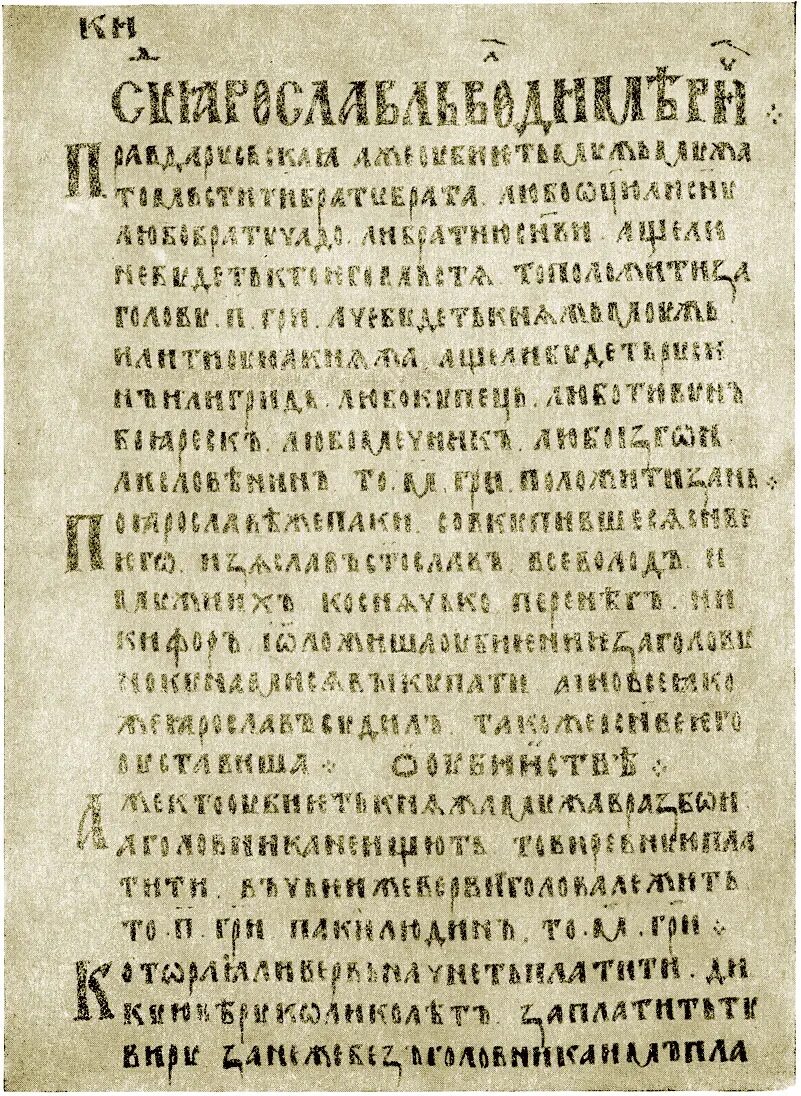 кн
Сꙋⷣ ꙗрославль вѡⷧдимѣриⷱ҇ ⁘
Правда русьскаꙗ аже оубиеть мужь мужа
то мьстити брату брата. любо ѡц҃ю ли сн҃у
любо брату чадо. ли братню сн҃ви. аще ли
не будеть кто ѥго мьстѧ. то положити за
голову. п҃. гри. аче будеть кнѧжь моужь
или тиоуна кнѧжа. аще ли будеть руси
нъ или гридь. любо купець. любо тивунъ
боꙗрескъ. любо мечникъ. любо изгои
ли словѣнинъ то. м҃. гри. положити за нь ⁘
По ꙗрославѣ же паки. совкупившесѧ сн҃ве
ѥгѡ. изѧславъ ст҃ославъ. всеволодъ. и
мужи ихъ коснѧчько перенѣгъ. ни
кифоръ. и ѿложиша оубиение за голову
но кунами сѧ выкупати а ино все ꙗко
же ꙗрославъ судилъ. такоже и сн҃ве ѥго
оуставиша ⁘ Ѡ оубииствѣ ⁘
Аже кто оубиеть кнѧжа мужа в разбои
а головника не ищють то виревную пла
тити. въ чьи же верви голова лежить
то. п҃. гри паки людинъ. то. м҃. гри ⁘
Которая ли вервь начнеть платити. ди
кую вѣру колико лѣтъ заплатить ту
виру занеже без головника имъ пла